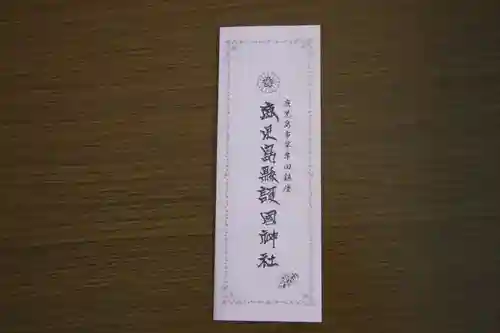 鹿児島市草牟田鎮座
鹿児島縣護國神社